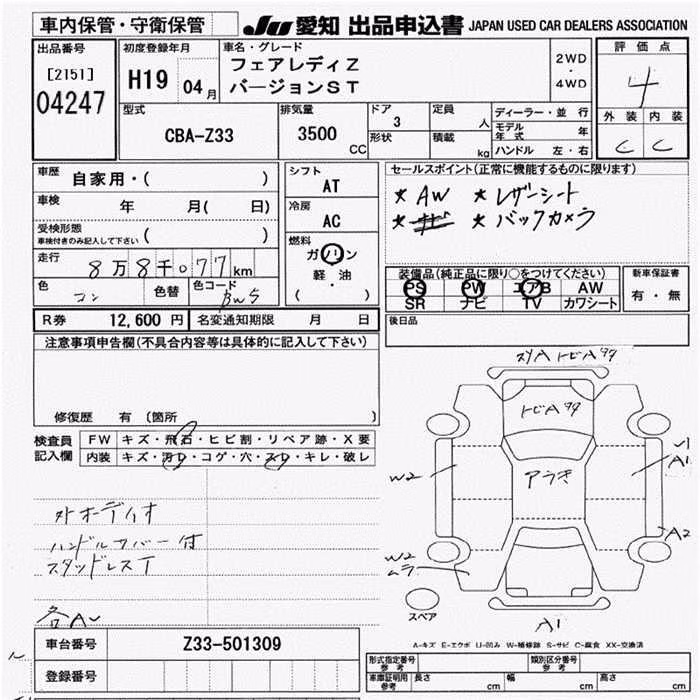 車内保管・守衛保管
JU 愛知 出品申込書 JAPAN USED CAR DEALERS ASSOCIATION
出品番号
[2151]
04247
初度登録年月
H19 04月
車名・グレード
フェアレディZ
バージョンST
2WD
・
4WD
評価点
4
外装 内装
C C
型式
CBA-Z33
排気量
3500
CC
ドア
3
形状
定員
人
積載
kg
ディーラー・並行
モデル年式 年
ハンドル 左・右
車歴
自家用・( )
車検
年 月( 日)
受検形態
車検付きのみ記入して下さい ( )
走行
8万8千077km
色
コン
色替
色コード
BW5
シフト
AT
冷房
AC
燃料
ガソリン
軽・油
( )
セールスポイント(正常に機能するものに限ります)
★ AW ★ レザーシート
★ ★ バックカメラ
装備品(純正品に限り○をつけてください)
PS PW エアB AW
SR ナビ TV カワシート
新車保証書
有・無
R券 12,600円 名変通知期限 月 日
後日品
注意事項申告欄(不具合内容等は具体的に記入して下さい)
修復歴 有 (箇所 )
検査員記入欄
FW キズ・飛石・ヒビ割・リペア跡・X要
内装 キズ・汚れ・コゲ・穴・スレ・キレ・破レ
外オーディオ
ハンドルカバー付
スタッドレスT
各A
車台番号 Z33-501309
登録番号
スリA トビA タタ
トビA タタ
アラキ
W2
A1
A2
W2
ムラ
スペア
A1
A-キズ E-エクボ U-凹み W-補修跡 S-サビ C-腐食 XX-交換済
形式指定番号 参考
類別区分番号 参考
車庫証明用 参考 長さ cm 幅 cm 高さ cm